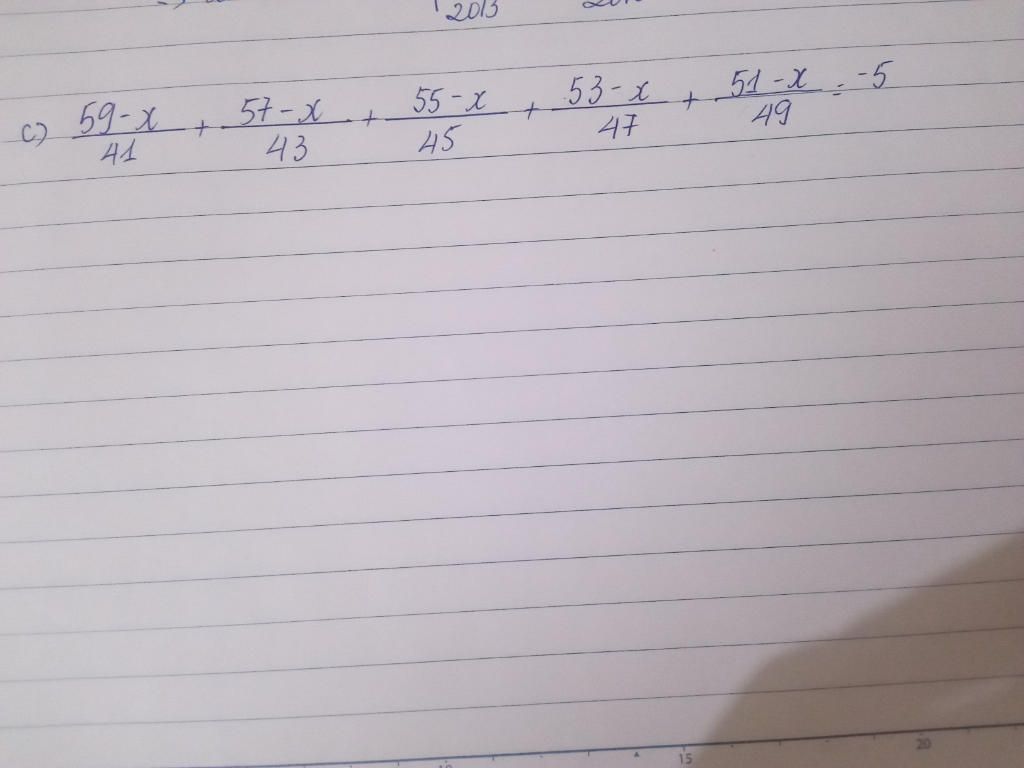 2013
c) \frac{59-x}{41} + \frac{57-x}{43} + \frac{55-x}{45} + \frac{53-x}{47} + \frac{51-x}{49} = -5
15 20